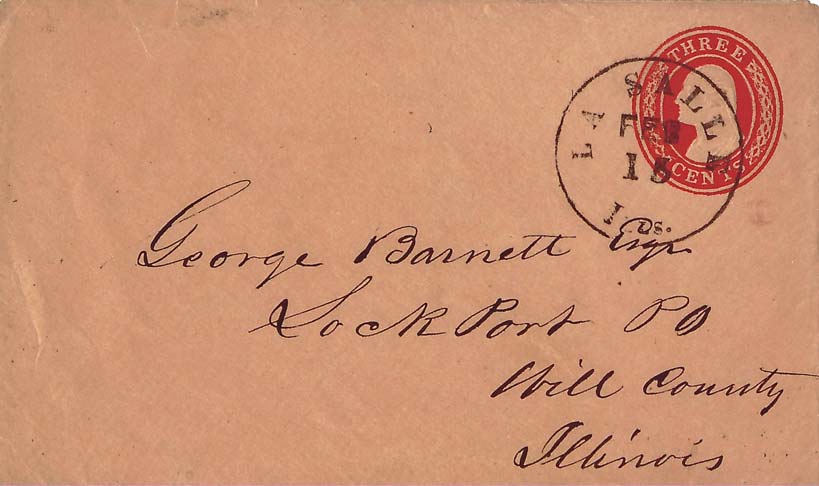 THREE
CENTS
LA SALLE
FEB
15
Ills.
George Barnett Esqr
Lock Port PO
Will County
Illinois